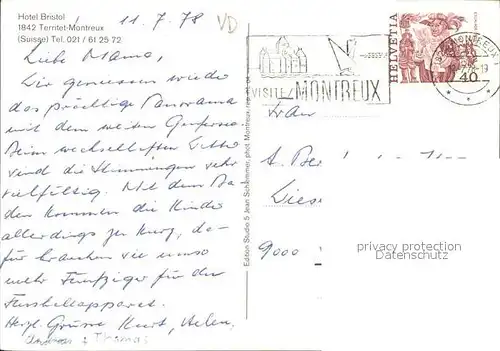 Hotel Bristol
1842 Territet-Montreux
(Suisse) Tel. 021 / 61 25 72
11. 7. 78
VD
Liebe Mama,
Wir geniessen wieder
das prächtige Panorama
mit dem weiten Genfersee
Beim wechselhaften Wetter
sind die Stimmungen sehr
vielfältig. Mit dem Ba
den kommen die Kinder
allerdings zu kurz, da-
für brauchen sie umso
mehr Fünfziger für den
Fussballapparat.
Herzl. Grüsse Kurt, Helen,
Thomas
Edition Studio 5 Jean Schlemmer, phot. Montreux
VISITEZ MONTREUX
MONTREUX 1
HELVETIA
40
Frau
A.
9000
privacy protection
Datenschutz